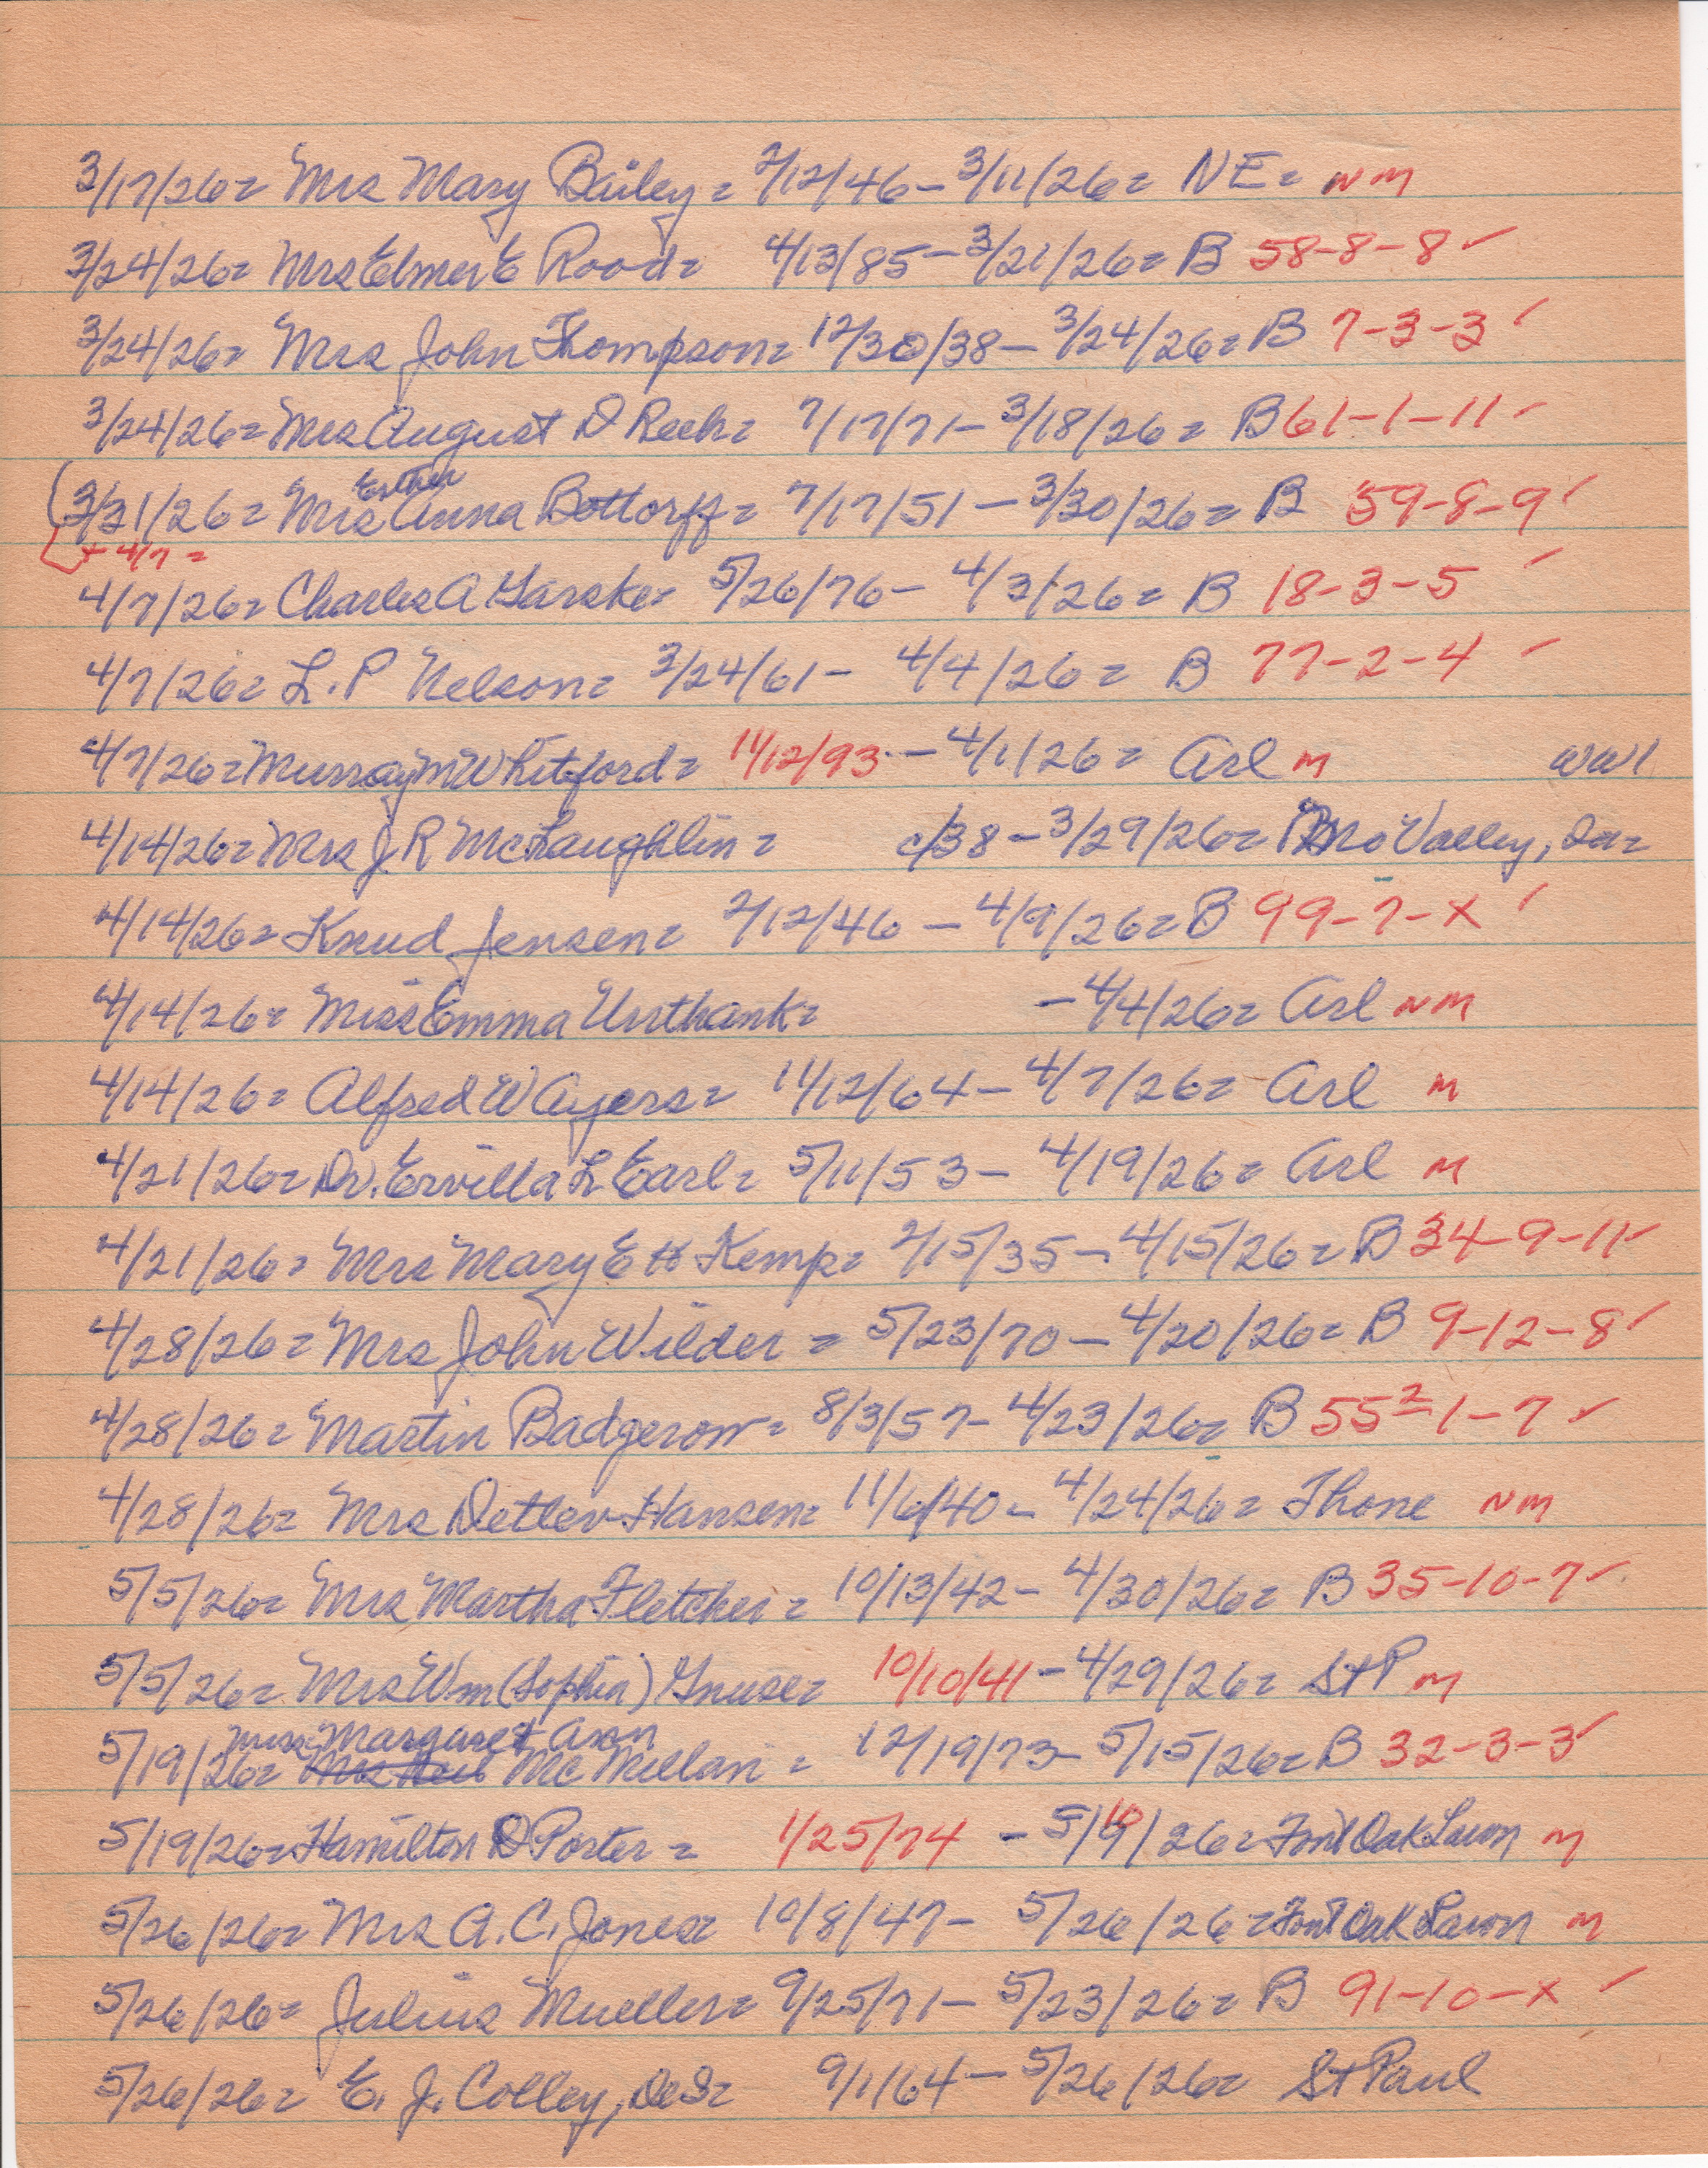 3/17/26= Mrs Mary Bailey= 2/12/46- 3/11/26= NE= NM
3/24/26= Mrs Elmer E Rood= 4/13/85- 3/21/26= B 58-8-8 ✓
3/24/26= Mrs John Thompson= 12/30/38- 3/24/26= B 7-3-3 ✓
3/24/26= Mrs August D Reeh= 7/17/71- 3/18/26= B 61-1-11 ✓
Esther
(3/31/26= Mrs Anna Bottorff= 7/17/51- 3/30/26= B 59-8-9 ✓
+ 4/7=
4/7/26= Charles A Garske= 5/26/76- 4/3/26= B 18-3-5 ✓
4/7/26= L.P Nelson= 3/24/61- 4/4/26= B 77-2-4 ✓
4/7/26= Murray M Whiteford= 11/12/93- 4/1/26= Arl M WW1
4/14/26= Mrs J R McLaughlin= c/38- 3/29/26= Mo Valley, Ia=
4/14/26= Knud Jensen= 2/12/46- 4/9/26= B 99-7-X ✓
4/14/26= Miss Emma Unthank= -4/4/26= Arl NM
4/14/26= Alfred W Ayers= 11/12/64- 4/7/26= Arl M
4/21/26= Dr. Ervilla L Earl= 5/11/53- 4/19/26= Arl M
4/21/26= Mrs Mary E H Kemp= 2/15/35- 4/15/26= B 34-9-11 ✓
4/28/26= Mrs John Wilder= 5/23/70- 4/20/26= B 9-12-8 ✓
4/28/26= Martin Badgerow= 8/3/57- 4/23/26= B 55²-1-7 ✓
4/28/26= Mrs Detlev Hansen= 11/6/40- 4/24/26= Thone NM
5/5/26= Mrs Martha Fletcher= 10/13/42- 4/30/26= B 35-10-7 ✓
5/5/26= Mrs Wm (Sophia) Gnuse= 10/10/41- 4/29/26= St P M
Miss Margaret Ann
5/19/26= Mrs Neil McMillan= 12/19/73- 5/15/26= B 32-3-3 ✓
5/19/26= Hamilton D Porter= 1/25/74 - 5/10/26= Font Oak Lawn M
5/26/26= Mrs A.C. Jones= 10/8/47- 5/26/26= Font Oak Lawn M
5/26/26= Julius Mueller= 9/25/71- 5/23/26= B 91-10-X ✓
5/26/26= E. J. Colley, DeS= 9/1/64- 5/26/26= St Paul